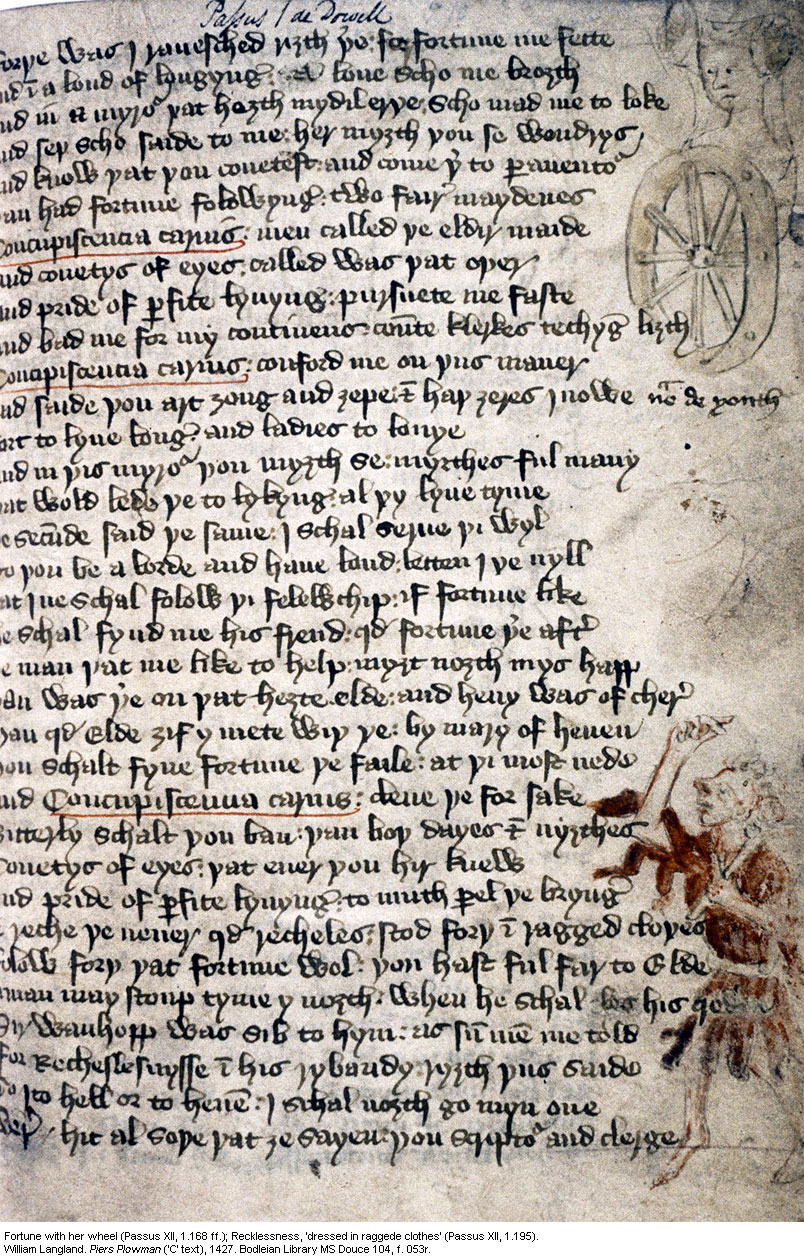 Passus I de Dowell
was I rauesched ryzth þe: for fortune me fette
of longyng: & loue scho me brozth
in a myroʳ þat hozth mydilerþe: scho mad me to loke
seþ scho saide to me: her myzth þou se wondrys
know þat þou couetest: and come þʳ to ꝑauentoʳ
had fortune folowyng: two fairʳ maydenes
Concupiscencia carnis: men called þe eldir maide
and couetys of eyes: called was þat oþer
and pride of ꝑfite lyuyng: pursuete me faste
and bad me for my continens: counte klerkes techyng lizth
Concupiscencia carnis: conford me on þus maner
and saide þou art zong and zepe: & hap zeres Inowe
nᵗᵒ de youth
to lyue long: and ladies to louye
and in þis myroʳ þou myzth se: myrthes ful many
þat wold lede þe to lykyng: al þy lyue tyme
secūde said þe same: I schal serue þi wyl
þou be a lorde and haue lond: letten I þe nyll
þat I ne schal folow þi felewschip: if fortune like
schal fynd me his frend: qd fortune þʳ aftʳ
man þat me like to help: myzt nozth mys happ
þan was þʳ on þat hezte elde: and heuy was of cherʳ
þan qd Elde zif y mete wiþ þe: by mary of heuen
þou schalt fyne fortune þe faile: at þi most nede
and Concupiscencia carnis: clene þe for sake
Bitterly schalt þou ban: þan boþ dayes & nyzthes
Couetys of eyes: þat euer þou hir knews
and pride of ꝑfite lyuyng: to muth ꝑel þe bryng
reche þe neuer qd recheles: stod forþ ī ragged cloþes
folow forþ þat fortune wol: þou hast ful far to Elde
man may stoup tyme y nozth: when he schal his
Sir Wanhopp was sib to hym: as sū mē me told
For Rechelesnysse ī his rybaudy: ryzth þus saide
I to hell or to heuē: I schal nozth go myn one
hit al soþe þat ze sayen: þou scriptoʳ and clerge
Fortune with her wheel (Passus XII, 1.168 ff.); Recklessness, 'dressed in raggede clothes' (Passus XII, 1.195).
William Langland. Piers Plowman ('C' text), 1427. Bodleian Library MS Douce 104, f. 053r.